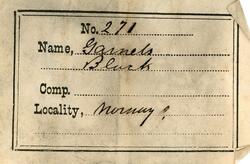 No. 271
Name, Garnets
Black
Comp.
Locality, Norway?